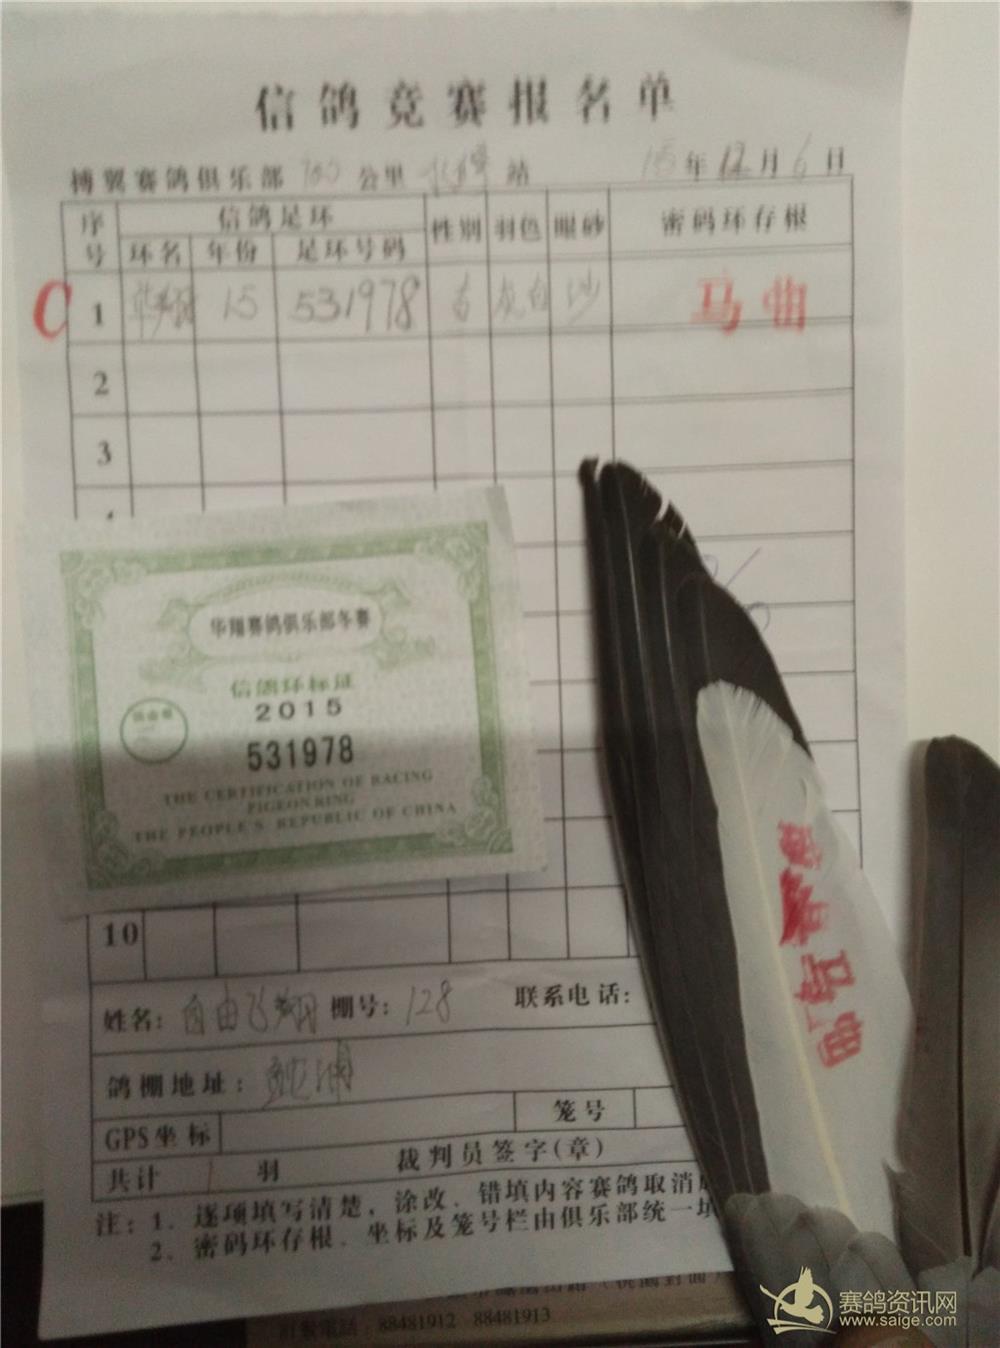 信鸽竞赛报名单
搏翼赛鸽俱乐部 700 公里 站 15年12月6日
序号 信鸽足环 性别 羽色 眼砂 密码环存根
环名 年份 足环号码
C 1 华翔 15 531978 白 沙 马曲
2
3
4
华翔赛鸽俱乐部冬赛
信鸽环标证
2015
531978
THE CERTIFICATION OF RACING
PIGEON RING
THE PEOPLE'S REPUBLIC OF CHINA
马曲
10
姓名: 自由飞翔 棚号: 128 联系电话:
鸽棚地址:
GPS坐标 笼号
共计 1 羽 裁判员签字(章)
注: 1. 逐项填写清楚, 涂改、错填内容赛鸽取消
2. 密码环存根、坐标及笼号栏由俱乐部统一填
88481912 88481913
赛鸽资讯网
www.saige.com